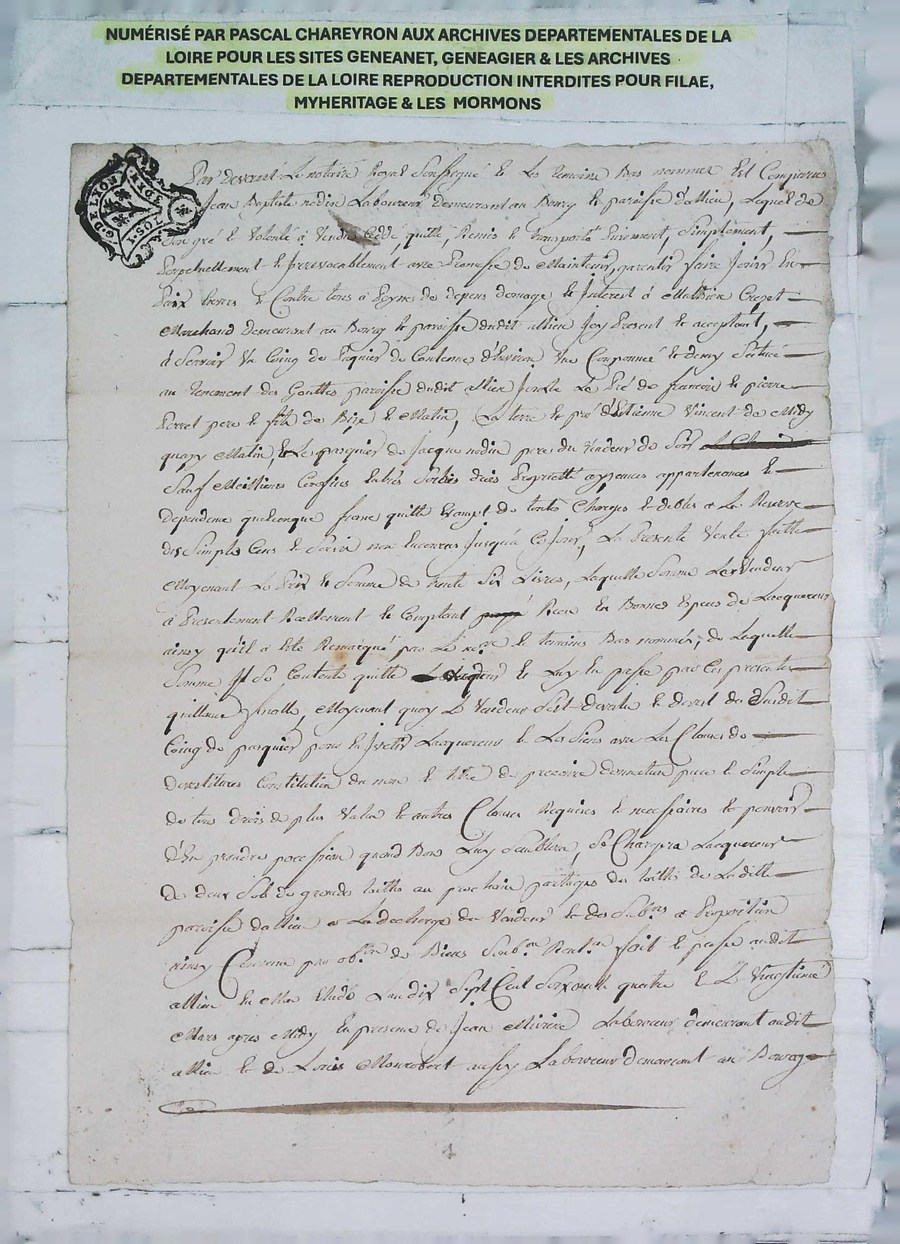 NUMÉRISÉ PAR PASCAL CHAREYRON AUX ARCHIVES DEPARTEMENTALES DE LA
LOIRE POUR LES SITES GENEANET, GENEAGIER & LES ARCHIVES
DEPARTEMENTALES DE LA LOIRE REPRODUCTION INTERDITES POUR FILAE,
MYHERITAGE & LES MORMONS
G. DE LYON
Par devant Le notaire Royal Soussigné et Les temoins Bas nommés Est Comparu
Jean Baptiste nodin Laboureur demeurant au Bourg et paroisse d'allieu, Lequel de
Son gré et Volonté à Vendu, Cédé, quitté, Remis et transporté Purement, Simplement,
Perpetuellement et Irrevocablement avec Promesse de Maintenir, garentir faire Jouir En
Paix envers et Contre tous à Peyne de depens domage et Interest à Mathieu
Marchand demeurant au Bourg et paroisse dudit allieu Icy Present et acceptant,
à Scavoir Un Coing de Paquier de Contenue d'Environ Une Couponnée et demy Scitué
au tenement des Gouttes paroisse dudit allieu Joignt Le Pré de françois et pierre
pere et fils de Bize et Matin, La terre et pré d'Etienne Vincent de Midy
quasy Matin, & Le pasquier de Jacque nodin pere du Vendeur de Soir
Sauf Meilleurs Confins Entrés Sorties droits Proprietté aysances appartenances et
dependence quelconque franc quitte Exempt de toutes Charges et debtes a La Reserve
des Simples Cens et Servis non Encourus Jusqu'à Ce Jour, La Presente Vente faitte
Moyenant Le Prix et Somme de trente Six Livres, Laquelle Somme Le Vendeur
à Presentement Reellement et Comptant Recu En Bonnes Especes de Lacquereur
ainsy qu'il a Eté Remarqué par Le no.re et temoins Bas nommés, de Laquelle
Somme Il Se Contente quitte Lacquereur et Luy En passe par Ces presentes
quittance, Moyenant quoy Le Vendeur S'est devetu et devet du Susdit
Coing de pasquier pour En Investir Lacquereur et Les Siens avec Les Clauses de
devestitures Constitution du nom et titre de precaire donnation pure et Simple
de tous droits de plus Value et autres Clauses Requises et necessaires et pouvoir
d'En prendre possession quand Bon Luy Semblera, Se Chargera Lacquereur
de deux Sols de grande taille au prochain partages des tailles de Laditte
paroisse dallieu a La decharge du Vendeur
ainsy Convenu par ob.on de Biens Soub.on Rent.on fait et passé audit
allieu En Mon Etude Lan dix Sept Cent Soixante quatre et Le Vingtieme
Mars apres Midy En presence de Jean Laboureur demeurant audit
allieu et de Louis aussy Laboureur demeurant au Bourg